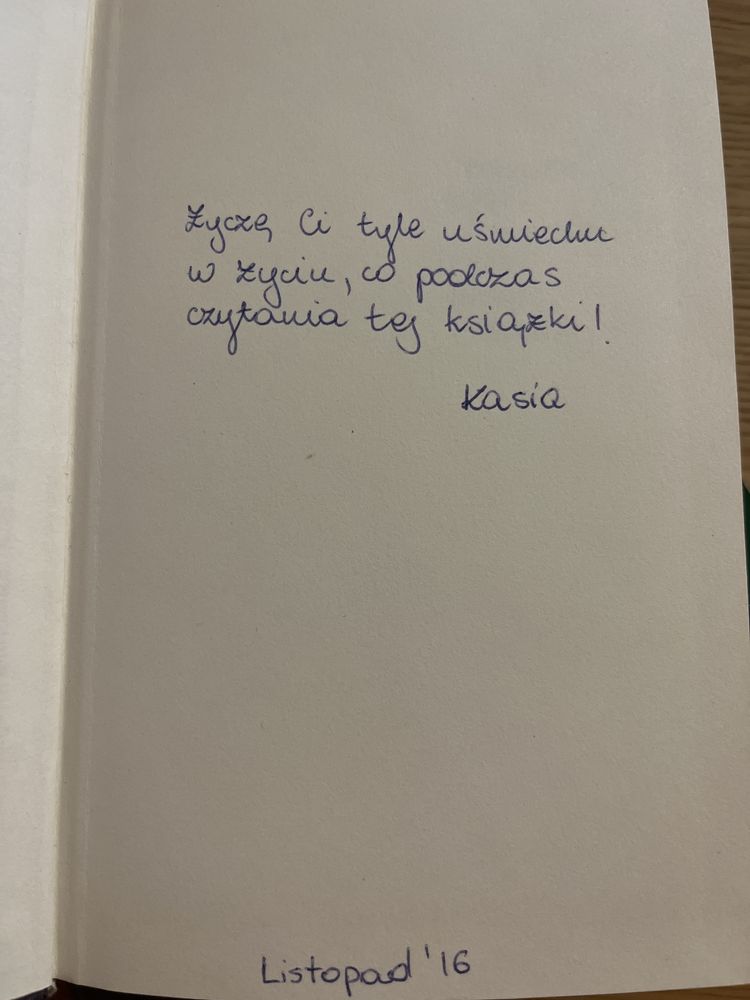 Życzę Ci tyle uśmiechu
w życiu, co podczas
czytania tej książki!
Kasia
Listopad '16